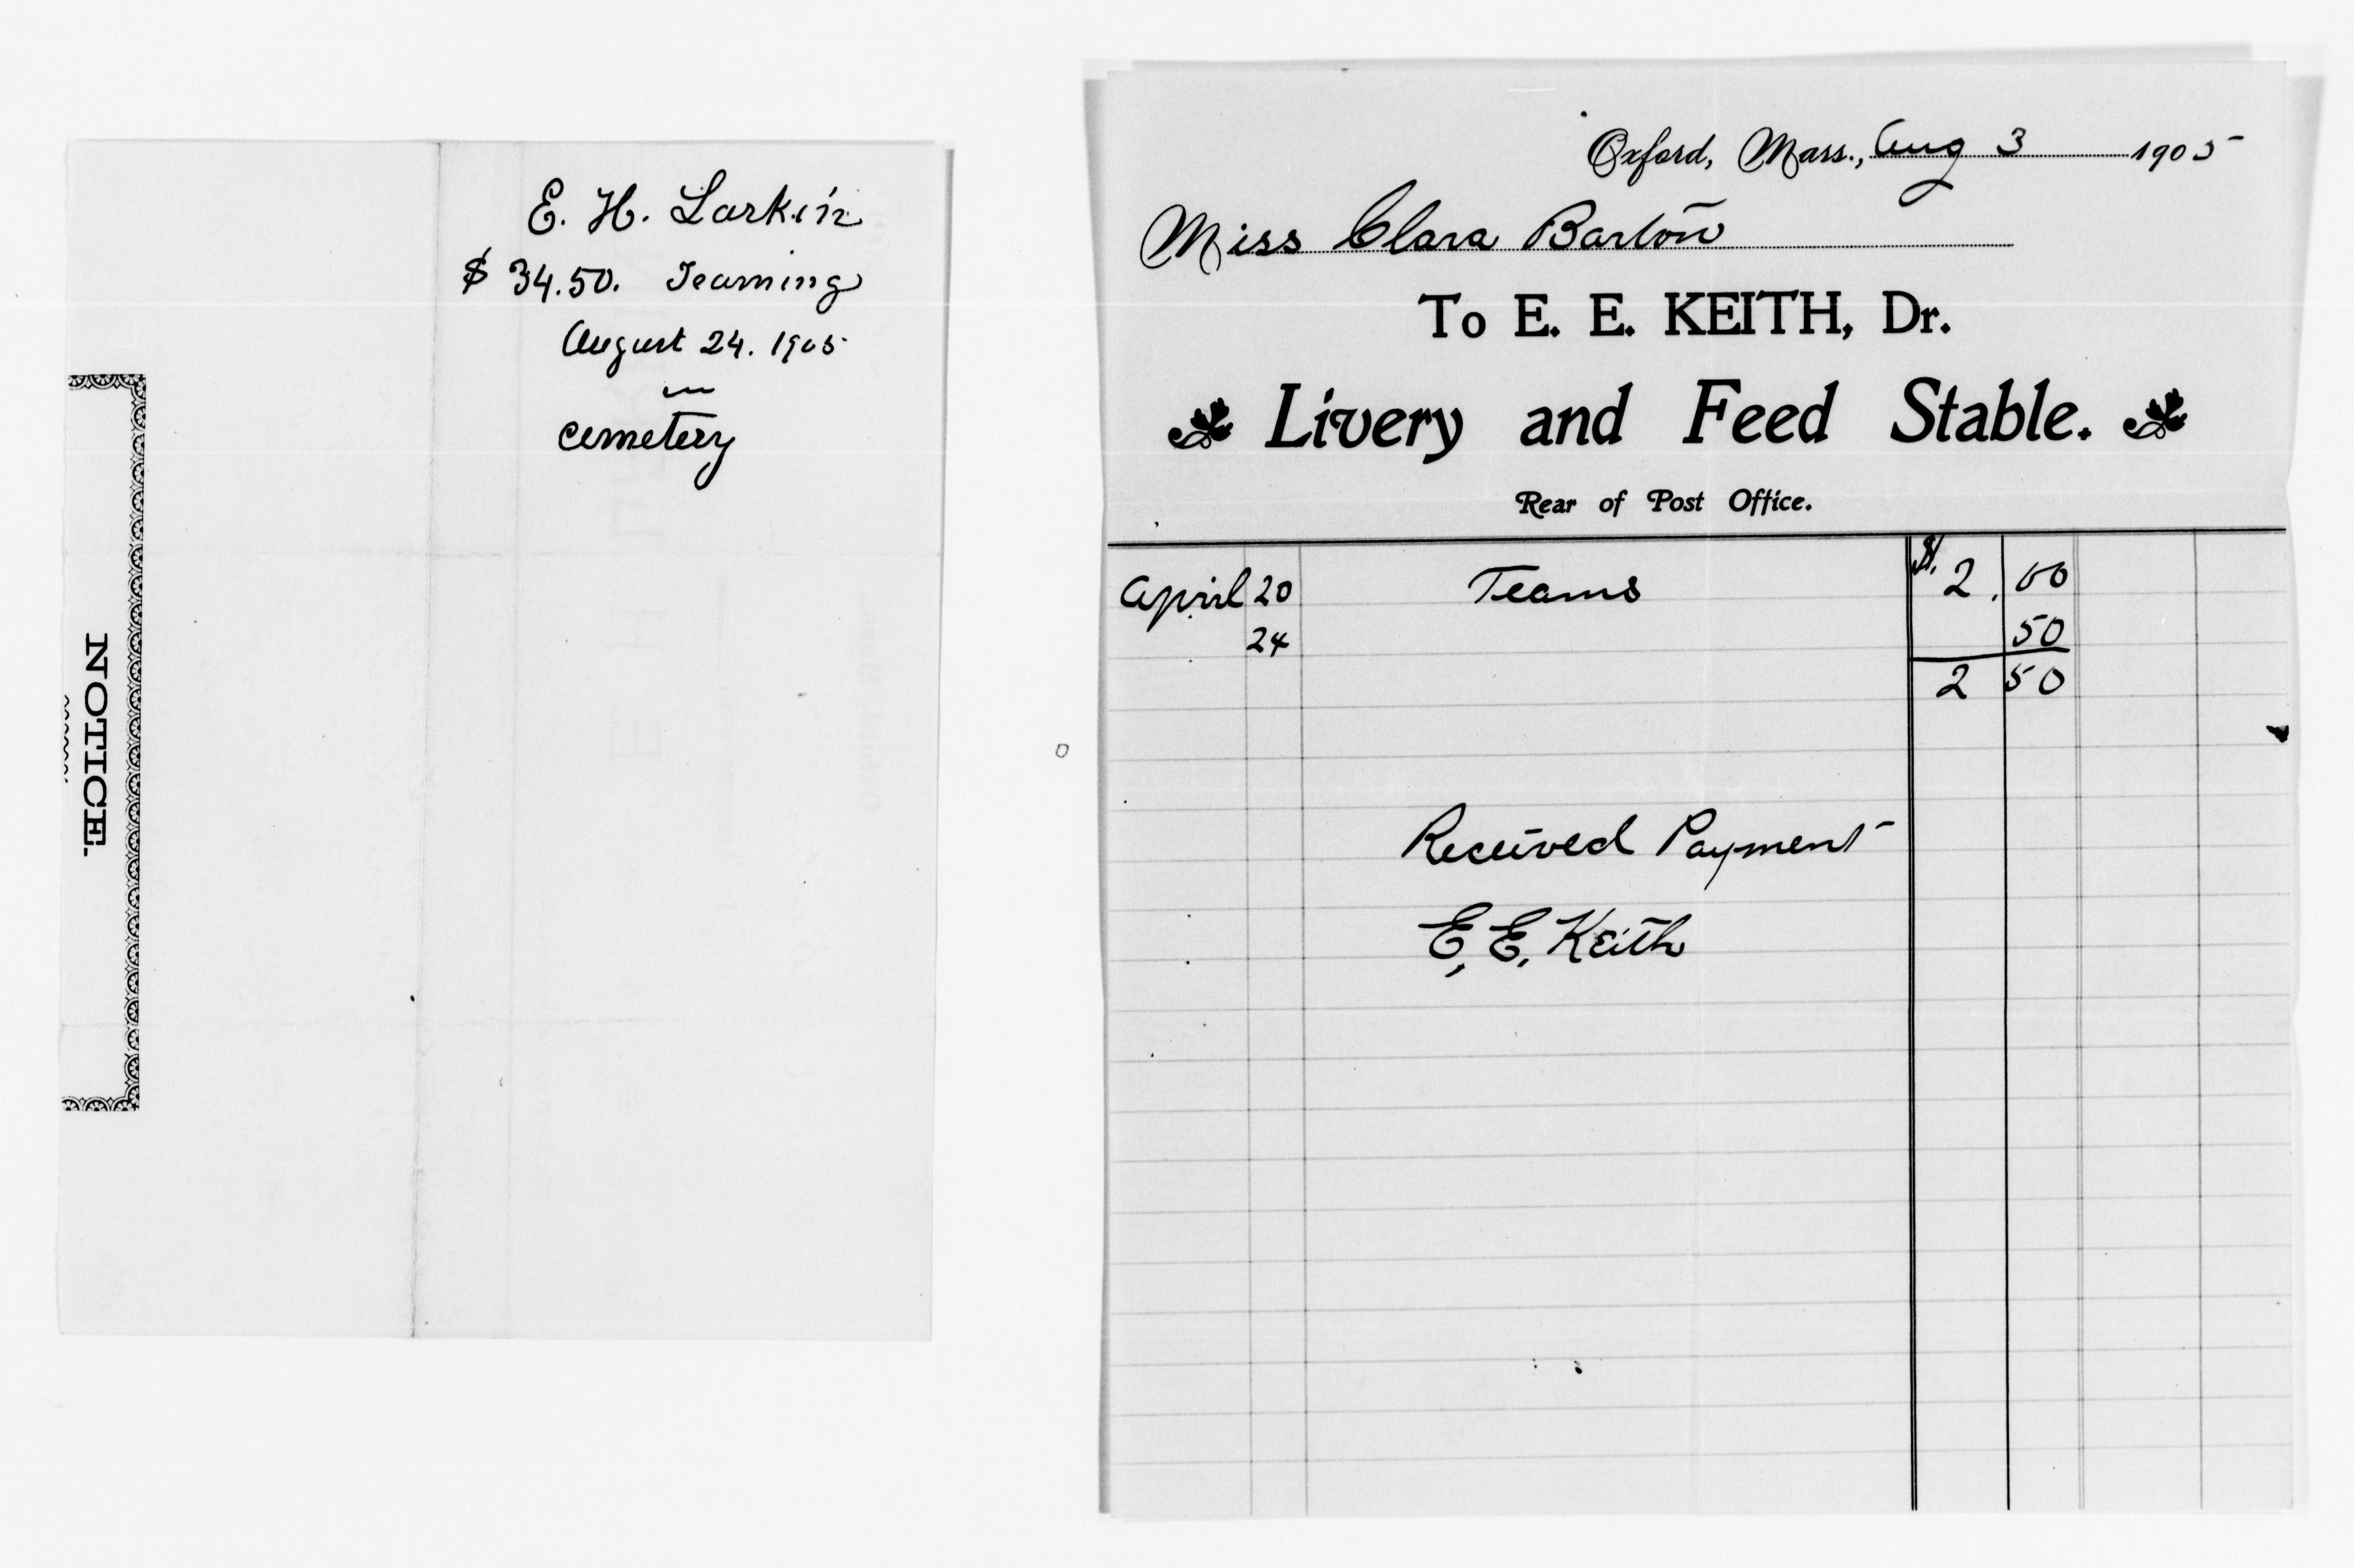 E. H. Larkin
$ 34.50. Teaming
August 24. 1905
in
cemetery
NOTICE.
Oxford, Mass., Aug 3 1905
Miss Clara Barton
To E. E. KEITH, Dr.
Livery and Feed Stable.
Rear of Post Office.
April 20 Teams $. 2.00
24 50
2 50
Received Payment
E, E, Keith